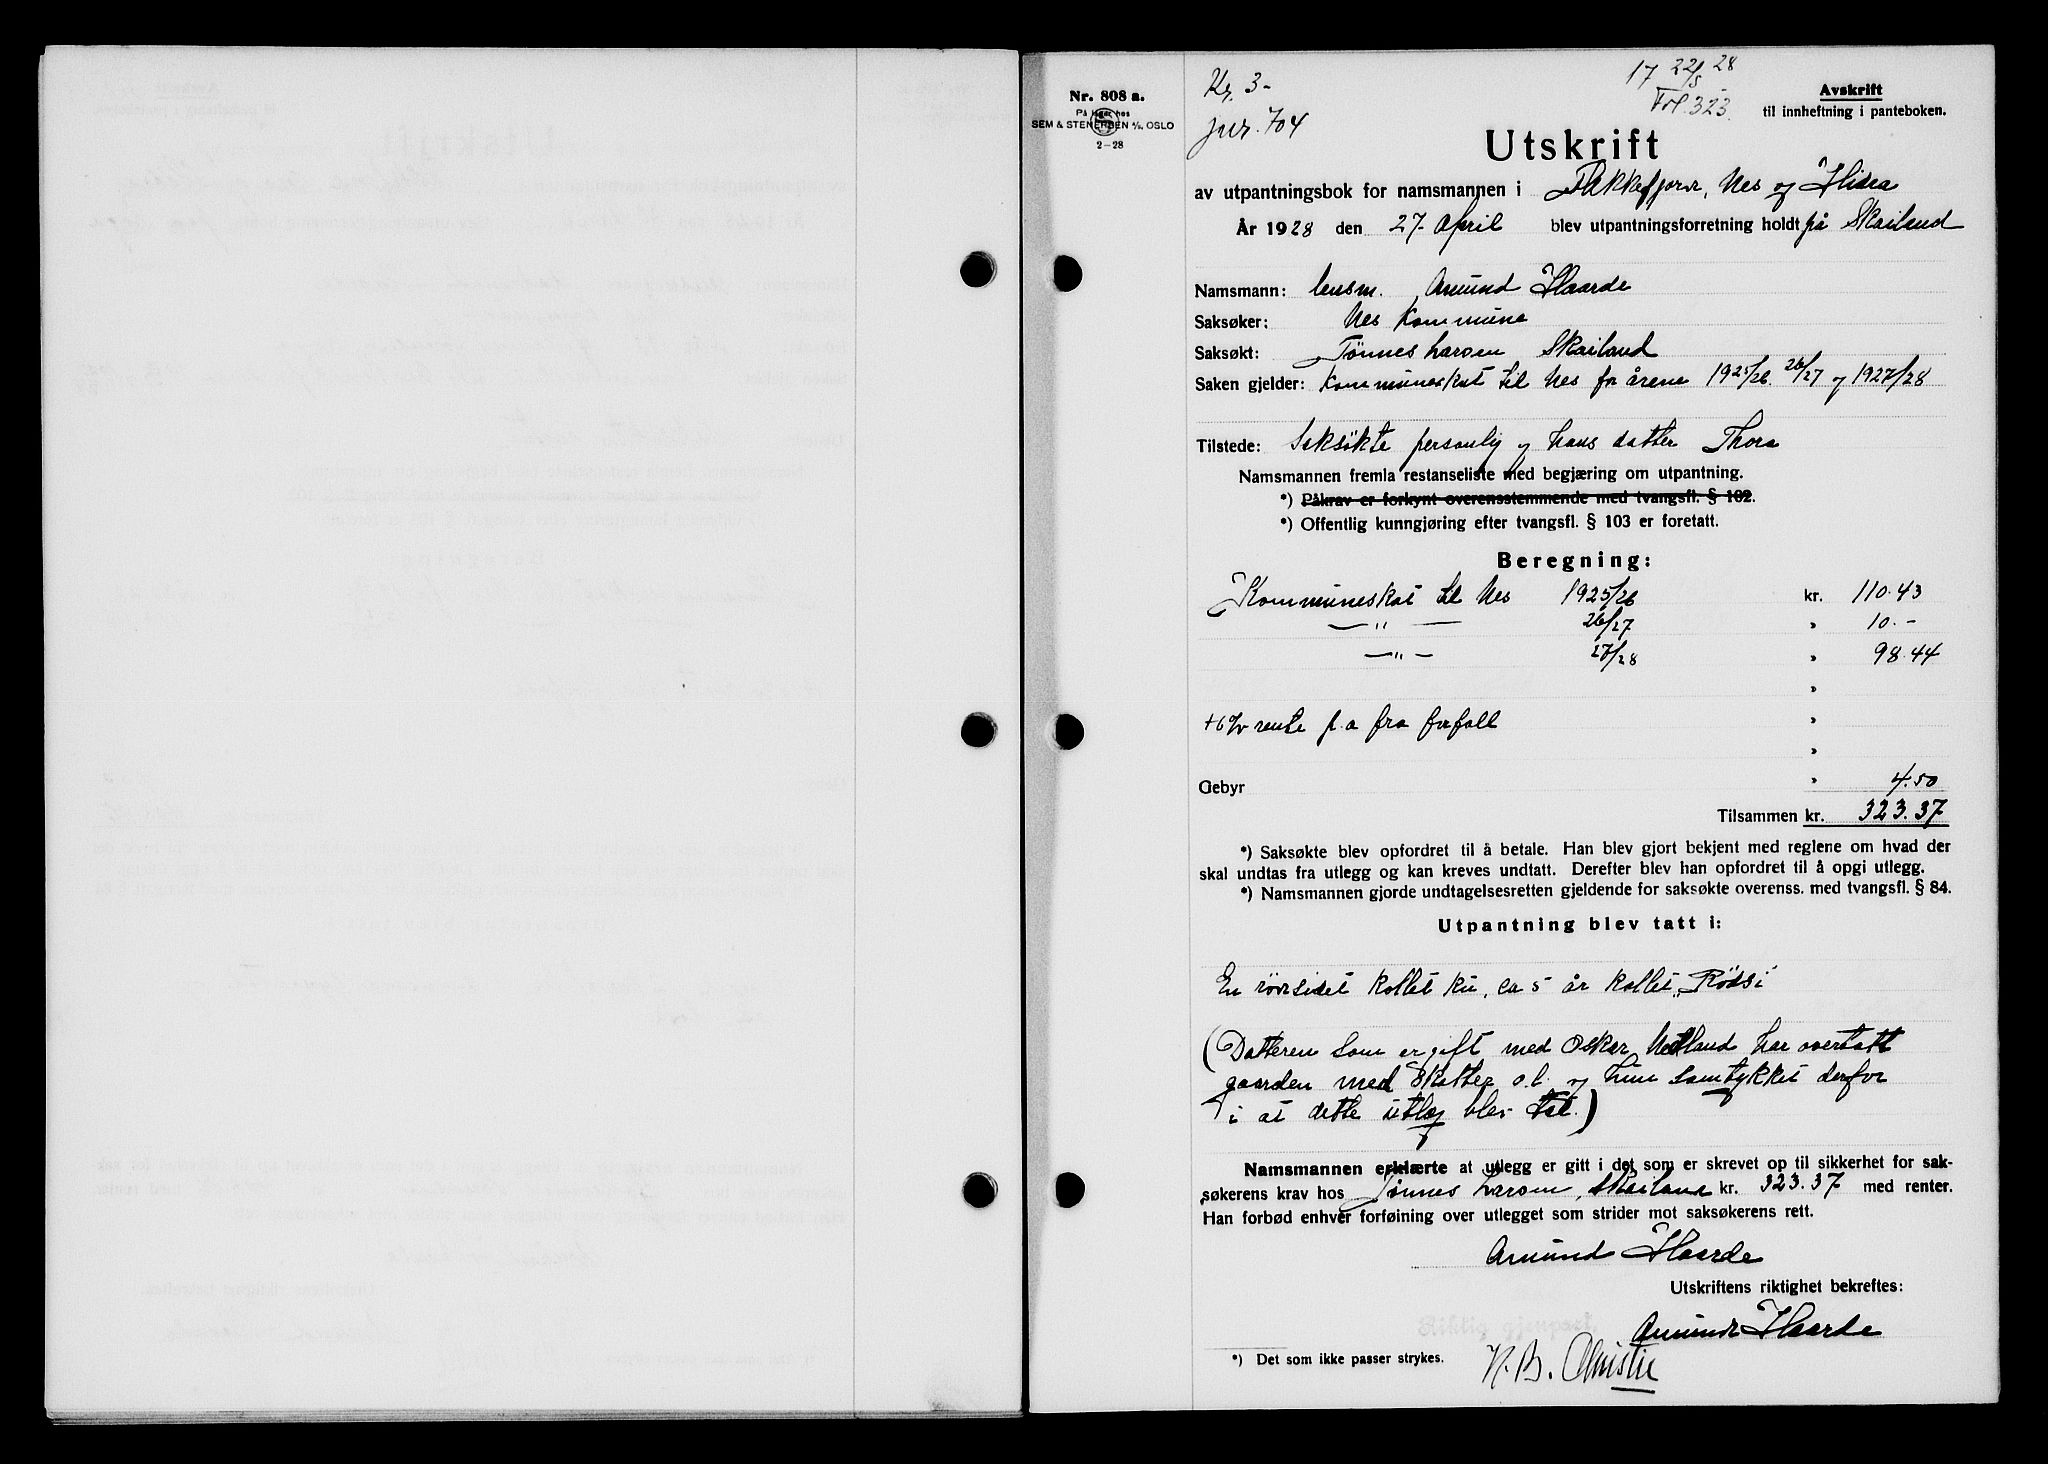 Nr. 808 a.
På lager hos
SEM & STENERSEN A/S, OSLO
2-28
Kr. 3-
jnr. 704
17 22/5 28
Fol. 323.
Avskrift
til innheftning i panteboken.
Utskrift
av utpantningsbok for namsmannen i Flekkefjord, Nes og Hidra
År 1928 den 27. April blev utpantningsforretning holdt på Skailand
Namsmann: lensm. Amund Haarde
Saksøker: Nes Kommune
Saksøkt: Tønnes Larsen Skailand
Saken gjelder: Kommuneskat til Nes for årene 1925/26 26/27 og 1927/28
Tilstede: Saksøkte personlig og hans datter Thora
Namsmannen fremla restanseliste med begjæring om utpantning.
*) Påkrav er forkynt overensstemmende med tvangsfl. § 102.
*) Offentlig kunngjøring efter tvangsfl. § 103 er foretatt.
Beregning:
Kommuneskat til Nes 1925/26 kr. 110.43
— " — 26/27 " 10.-
— " — 27/28 " 98.44
"
+6% rente p.a fra forfall "
"
Gebyr " 4.50
Tilsammen kr. 323.37
*) Saksøkte blev opfordret til å betale. Han blev gjort bekjent med reglene om hvad der
skal undtas fra utlegg og kan kreves undtatt. Derefter blev han opfordret til å opgi utlegg.
*) Namsmannen gjorde undtagelsesretten gjeldende for saksøkte overenss. med tvangsfl. § 84.
Utpantning blev tatt i:
En rødsidet kollet ku, ca 5 år kallet "Rødsi"
(Datteren som er gift med Oskar Netland har overtatt
gaarden med skatter o.l. og hun samtykket derfor
i at dette utlæg blev tat.)
Namsmannen erklærte at utlegg er gitt i det som er skrevet op til sikkerhet for sak-
søkerens krav hos Tønnes Larsen, Skailand kr. 323.37 med renter.
Han forbød enhver forføining over utlegget som strider mot saksøkerens rett.
Amund Haarde
Utskriftens riktighet bekreftes:
Riktig gjenpart.
Amund Haarde
*) Det som ikke passer strykes.
N. B. Christie